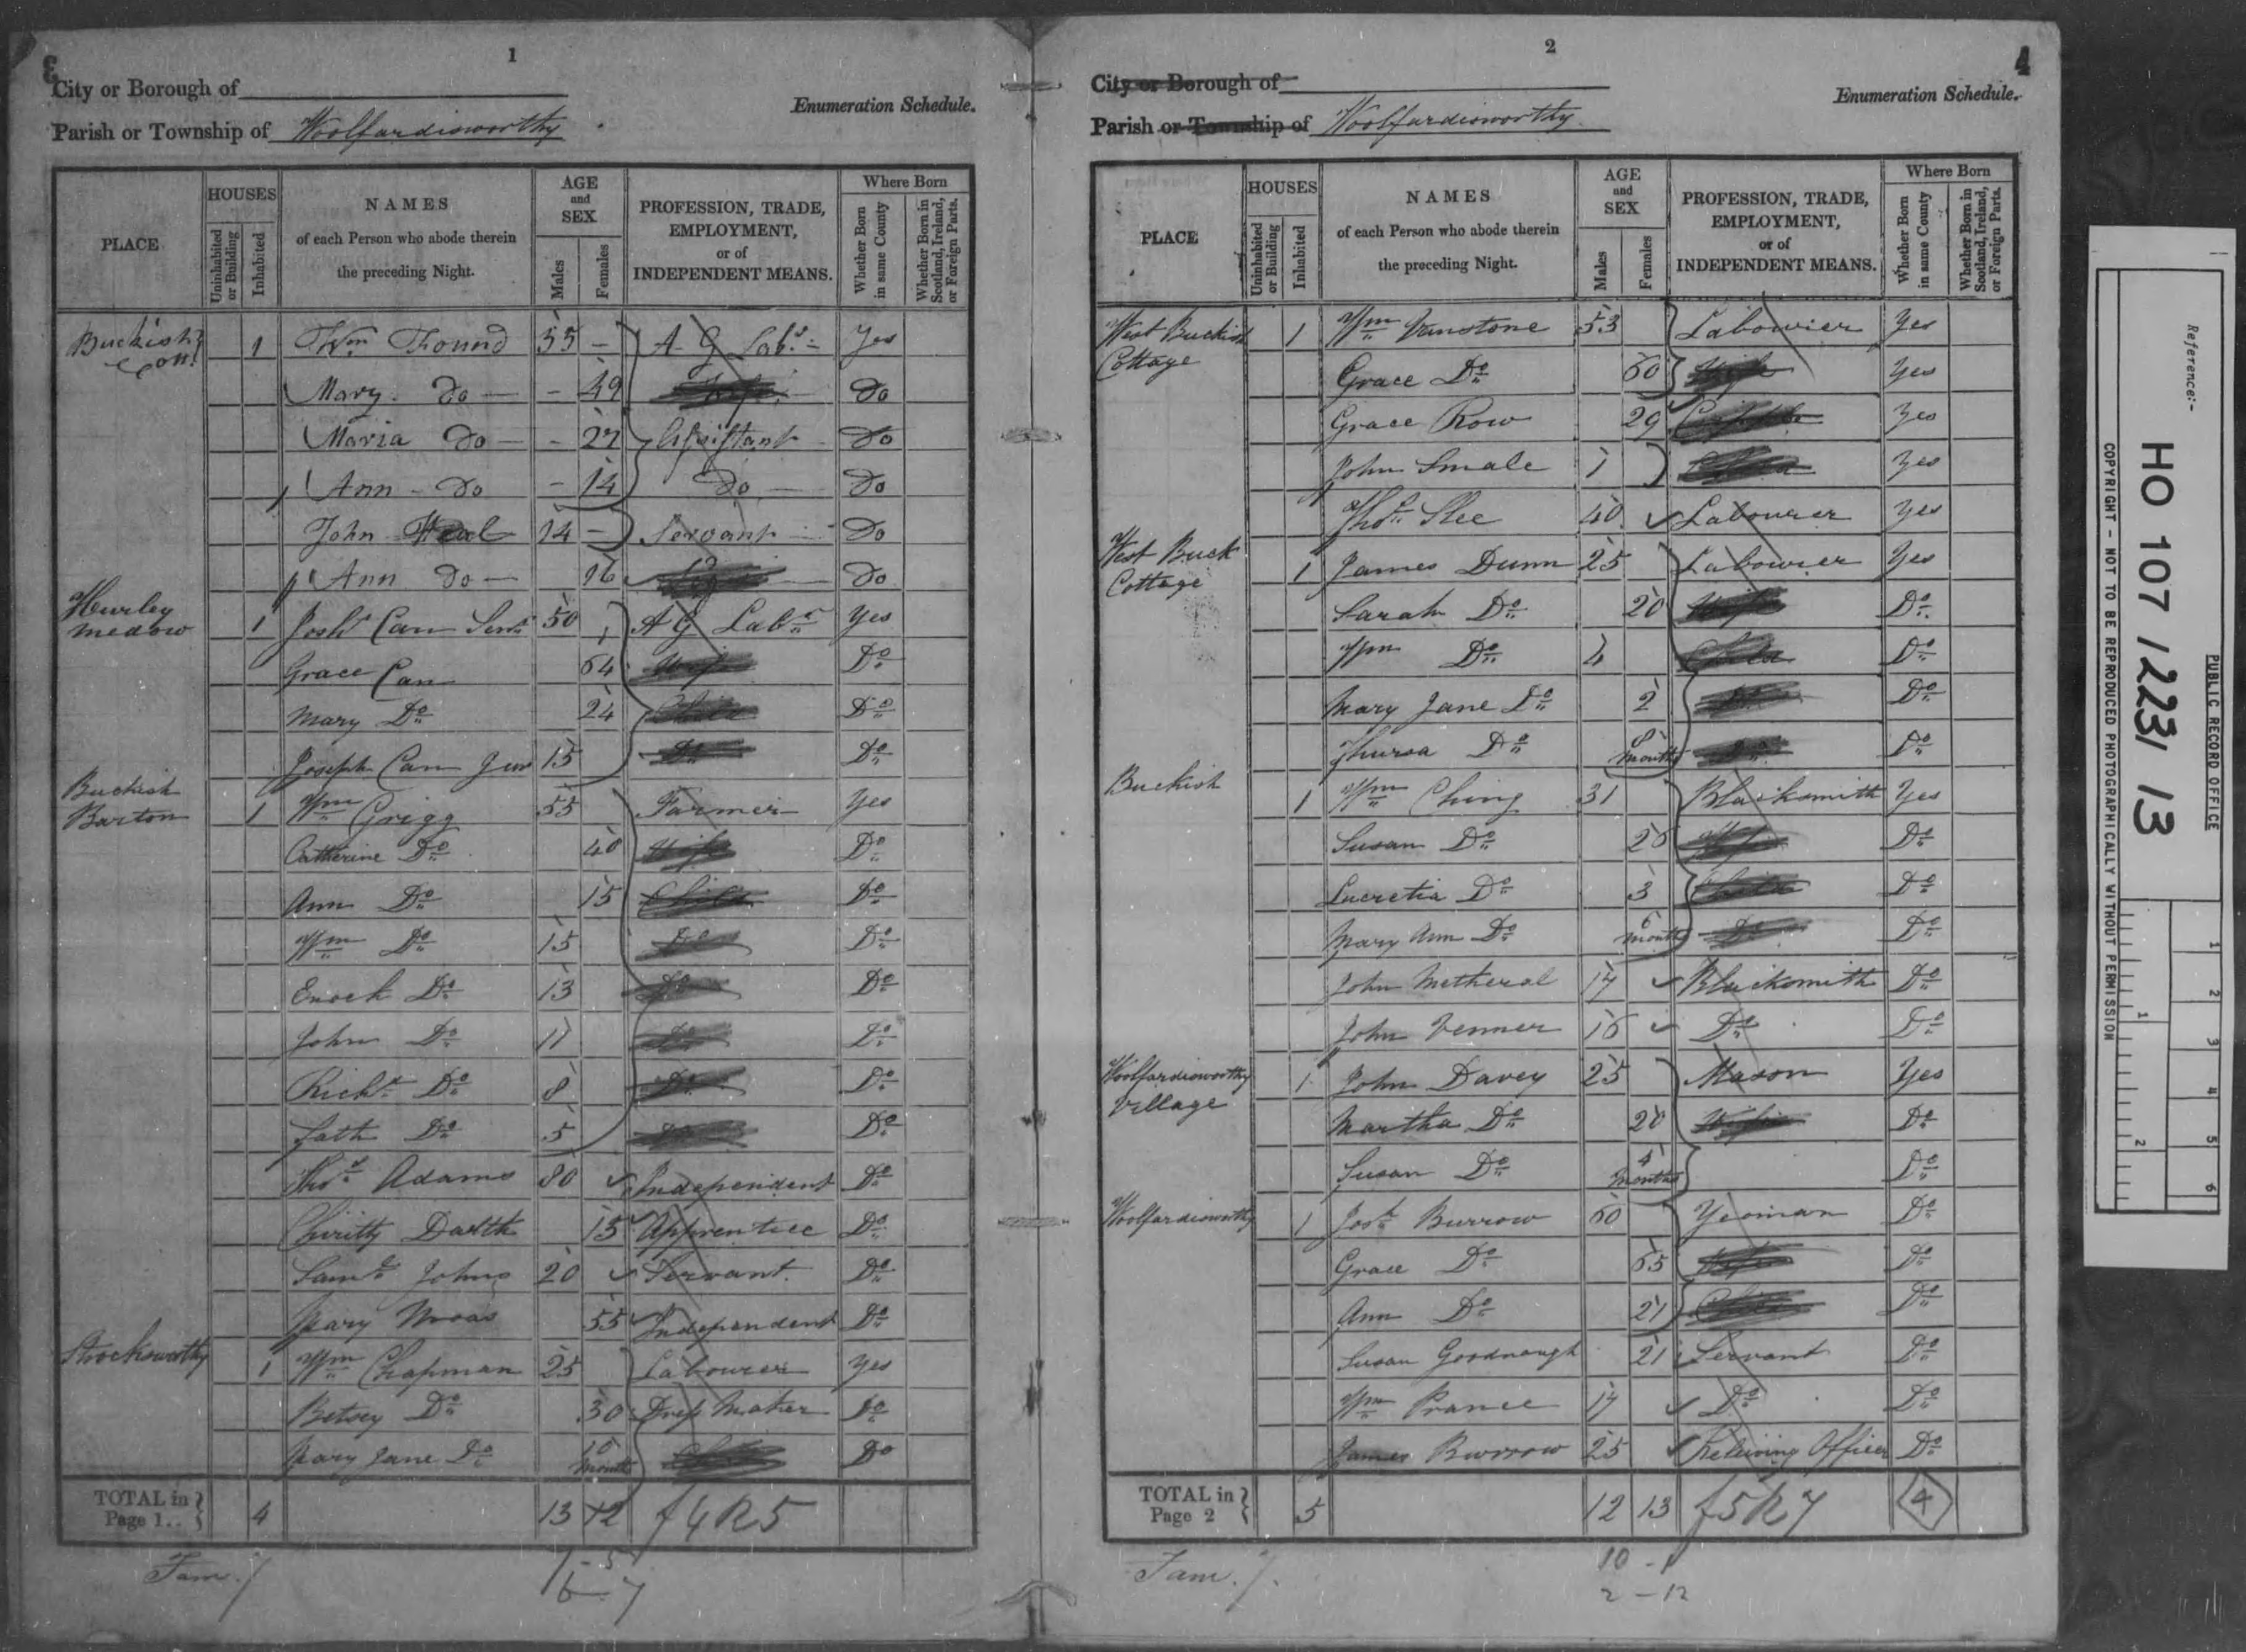 3
1
City or Borough of
Enumeration Schedule.
Parish or Township of Woolfardisworthy
PLACE
HOUSES
Uninhabited or Building
Inhabited
NAMES
of each Person who abode therein
the preceding Night.
AGE
and
SEX
Males
Females
PROFESSION, TRADE,
EMPLOYMENT,
or of
INDEPENDENT MEANS.
Where Born
Whether Born in same County
Whether Born in Scotland, Ireland, or Foreign Parts.
Buckish 1 Wm Found 55 - A G Labr Yes
Mary Do - 49 Wife Do
Maria Do - 27 Assistant Do
Ann Do - 14 Do Do
John Heal 14 - Servant Do
Ann Do 16 Do
Hurley
medow 1 Josh Can Senr 50 A G Labr Yes
Grace Can 64 Wife Do
Mary Do 24 Child Do
Joseph Can Junr 15 Do Do
Buckish
Barton 1 Wm Grigg 55 Farmer Yes
Catherine Do 40 Wife Do
Ann Do 15 Child Do
Wm Do 15 Do Do
Enoch Do 13 Do Do
John Do 11 Do Do
Richd Do 8 Do Do
Do 5 Do Do
Thos Adams 80 Independent Do
15 Apprentice Do
Saml Johns 20 Servant Do
Mary 55 Independent Do
Stocksworthy 1 Wm Chapman 25 Labourer Yes
Betsey Do 30 Dress Maker Do
Mary Jane Do 10 month Child Do
TOTAL in Page 1.. 4 13 12 f 4 R 5
Fam. 7
1 - 5
6 - 7
2
4
City or Borough of
Enumeration Schedule.
Parish or Township of Woolfardisworthy
PLACE
HOUSES
Uninhabited or Building
Inhabited
NAMES
of each Person who abode therein
the preceding Night.
AGE
and
SEX
Males
Females
PROFESSION, TRADE,
EMPLOYMENT,
or of
INDEPENDENT MEANS.
Where Born
Whether Born in same County
Whether Born in Scotland, Ireland, or Foreign Parts.
West Buckish 1 Wm Vanstone 53 Labourier Yes
Cottage
Grace Do 60 Wife Yes
Grace Row 29 Cripple Yes
John Smale 1 Child Yes
Thos Slee 40 Labourer Yes
West Buck
Cottage 1 James Dunn 25 Labourer Yes
Sarah Do 20 Wife Do
Wm Do 4 Child Do
Mary Jane Do 2 Do Do
Thursa Do 8 months Do Do
Buckish 1 Wm Ching 31 Blacksmith Yes
Susan Do 26 Wife Do
Lucretia Do 3 Child Do
Mary Ann Do 6 month Do Do
John Metheral 17 Blacksmith Do
John Venner 16 Do Do
Woolfardisworthy
Village 1 John Davey 25 Mason Yes
Martha Do 20 Wife Do
Susan Do months Do
Woolfardisworthy 1 Josh Burrow 60 Yeoman Do
Grace Do 65 Wife Do
Ann Do 21 Child Do
Susan Goodnough 21 Servant Do
Wm Prance 17 Do Do
James Burrow 25 Releiving Officer Do
TOTAL in Page 2 5 12 13 f 5 R 7 4
Fam. 7.
10 - 1
2 - 12
Reference:-
HO 107 / 223 / 13
PUBLIC RECORD OFFICE
COPYRIGHT - NOT TO BE REPRODUCED PHOTOGRAPHICALLY WITHOUT PERMISSION
1 2 3 4 5 6
1 2